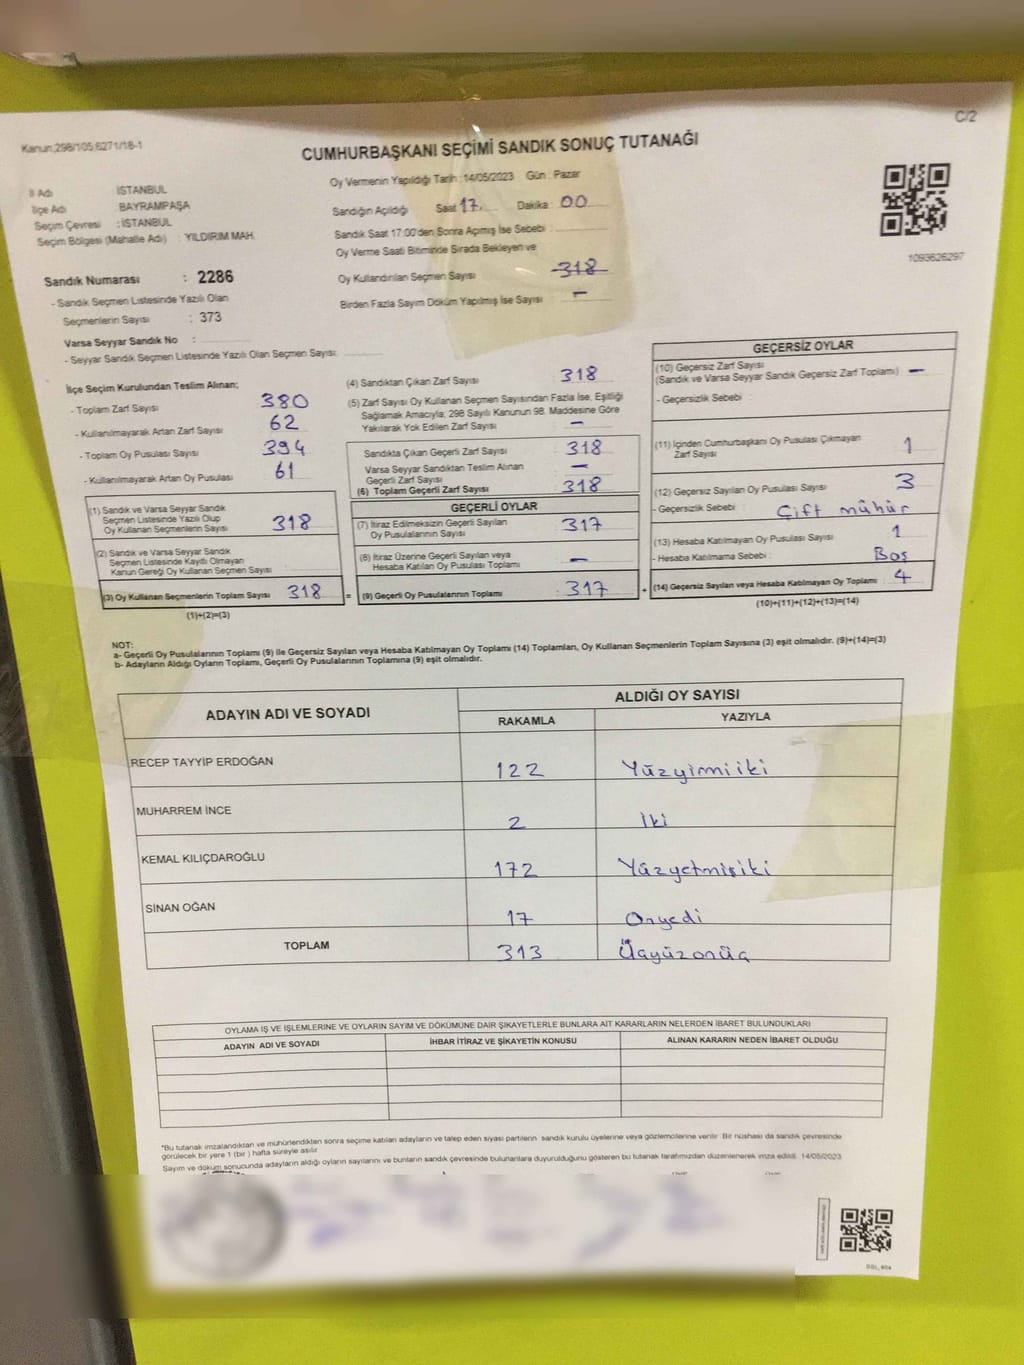 C/2
Kanun:298/105;6271/18-1
CUMHURBAŞKANI SEÇİMİ SANDIK SONUÇ TUTANAĞI
İl Adı : İSTANBUL
İlçe Adı : BAYRAMPAŞA
Seçim Çevresi : İSTANBUL
Seçim Bölgesi (Mahalle Adı) : YILDIRIM MAH.
Sandık Numarası : 2286
- Sandık Seçmen Listesinde Yazılı Olan
Seçmenlerin Sayısı : 373
Varsa Seyyar Sandık No :
- Seyyar Sandık Seçmen Listesinde Yazılı Olan Seçmen Sayısı:
Oy Vermenin Yapıldığı Tarih : 14/05/2023 Gün : Pazar
Sandığın Açıldığı Saat 17. Dakika : 00
Sandık Saat 17:00'den Sonra Açımış İse Sebebi :
Oy Verme Saati Bitiminde Sırada Bekleyen ve
Oy Kullandırılan Seçmen Sayısı 318
Birden Fazla Sayım Döküm Yapılmış İse Sayısı : –
1093626297
İlçe Seçim Kurulundan Teslim Alınan;
- Toplam Zarf Sayısı 380
- Kullanılmayarak Artan Zarf Sayısı : 62
- Toplam Oy Pusulası Sayısı : 394
- Kullanılmayarak Artan Oy Pusulası : 61
(1) Sandık ve Varsa Seyyar Sandık
Seçmen Listesinde Yazılı Olup
Oy Kullanan Seçmenlerin Sayısı 318
(2) Sandık ve Varsa Seyyar Sandık
Seçmen Listesinde Kayıtlı Olmayan
Kanun Gereği Oy Kullanan Seçmen Sayısı
(3) Oy Kullanan Seçmenlerin Toplam Sayısı 318 =
(1)+(2)=(3)
(4) Sandıktan Çıkan Zarf Sayısı : 318
(5) Zarf Sayısı Oy Kullanan Seçmen Sayısından Fazla İse, Eşitliği
Sağlamak Amacıyla, 298 Sayılı Kanunun 98. Maddesine Göre
Yakılarak Yok Edilen Zarf Sayısı : –
Sandıkta Çıkan Geçerli Zarf Sayısı : 318
Varsa Seyyar Sandıktan Teslim Alınan
Geçerli Zarf Sayısı : –
(6) Toplam Geçerli Zarf Sayısı : 318
GEÇERLİ OYLAR
(7) İtiraz Edilmeksizin Geçerli Sayılan
Oy Pusulalarının Sayısı : 317
(8) İtiraz Üzerine Geçerli Sayılan veya
Hesaba Katılan Oy Pusulası Toplamı : –
(9) Geçerli Oy Pusulalarının Toplamı : 317 +
GEÇERSİZ OYLAR
(10) Geçersiz Zarf Sayısı
(Sandık ve Varsa Seyyar Sandık Geçersiz Zarf Toplamı) : –
- Geçersizlik Sebebi :
(11) İçinden Cumhurbaşkanı Oy Pusulası Çıkmayan
Zarf Sayısı : 1
(12) Geçersiz Sayılan Oy Pusulası Sayısı : 3
- Geçersizlik Sebebi : Çift mühür
(13) Hesaba Katılmayan Oy Pusulası Sayısı : 1
- Hesaba Katılmama Sebebi : Boş
(14) Geçersiz Sayılan veya Hesaba Katılmayan Oy Toplamı : 4
(10)+(11)+(12)+(13)=(14)
NOT:
a- Geçerli Oy Pusulalarının Toplamı (9) ile Geçersiz Sayılan veya Hesaba Katılmayan Oy Toplamı (14) Toplamları, Oy Kullanan Seçmenlerin Toplam Sayısına (3) eşit olmalıdır. (9)+(14)=(3)
b- Adayların Aldığı Oyların Toplamı, Geçerli Oy Pusulalarının Toplamına (9) eşit olmalıdır.
ADAYIN ADI VE SOYADI ALDIĞI OY SAYISI
RAKAMLA YAZIYLA
RECEP TAYYİP ERDOĞAN 122 Yüzyirmiiki
MUHARREM İNCE 2 İki
KEMAL KILIÇDAROĞLU 172 Yüzyetmişiki
SİNAN OĞAN 17 Onyedi
TOPLAM 313 Üçyüzonüç
OYLAMA İŞ VE İŞLEMLERİNE VE OYLARIN SAYIM VE DÖKÜMÜNE DAİR ŞİKAYETLERLE BUNLARA AİT KARARLARIN NELERDEN İBARET BULUNDUKLARI
ADAYIN ADI VE SOYADI İHBAR İTİRAZ VE ŞİKAYETİN KONUSU ALINAN KARARIN NEDEN İBARET OLDUĞU
*Bu tutanak imzalandıktan ve mühürlendikten sonra seçime katılan adayların ve talep eden siyasi partilerin sandık kurulu üyelerine veya gözlemcilerine verilir. Bir nüshası da sandık çevresinde
görülecek bir yere 1 (bir) hafta süreyle asılır.
Sayım ve döküm sonucunda adayların aldığı oyların sayılarını ve bunların sandık çevresinde bulunanlara duyurulduğunu gösteren bu tutanak tarafımızdan düzenlenerek imza edildi. 14/05/2023